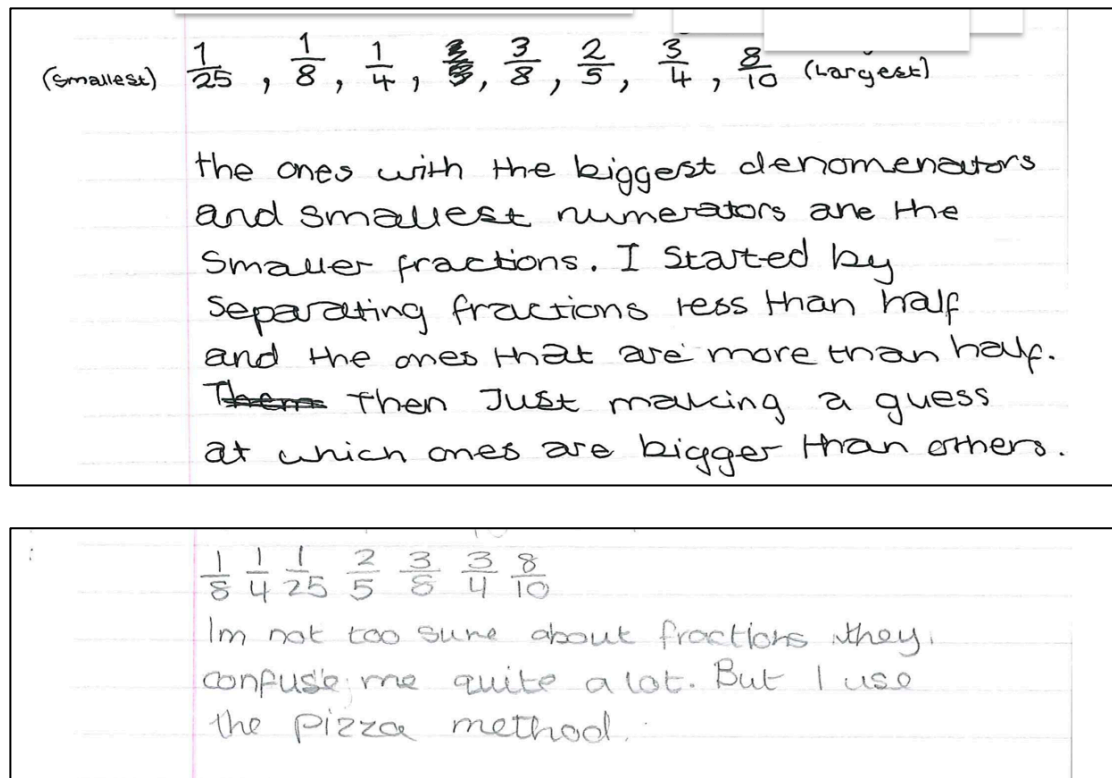 (smallest) 1/25, 1/8, 1/4, 3/8, 2/5, 3/4, 8/10 (Largest)
the ones with the biggest denomenators
and smallest numerators are the
smaller fractions. I started by
separating fractions less than half
and the ones that are more than half.
Then Just making a guess
at which ones are bigger than others.
1/8 1/4 1/25 2/5 3/8 3/4 8/10
Im not too sure about fractions they
confuse me quite a lot. But I use
the pizza method.